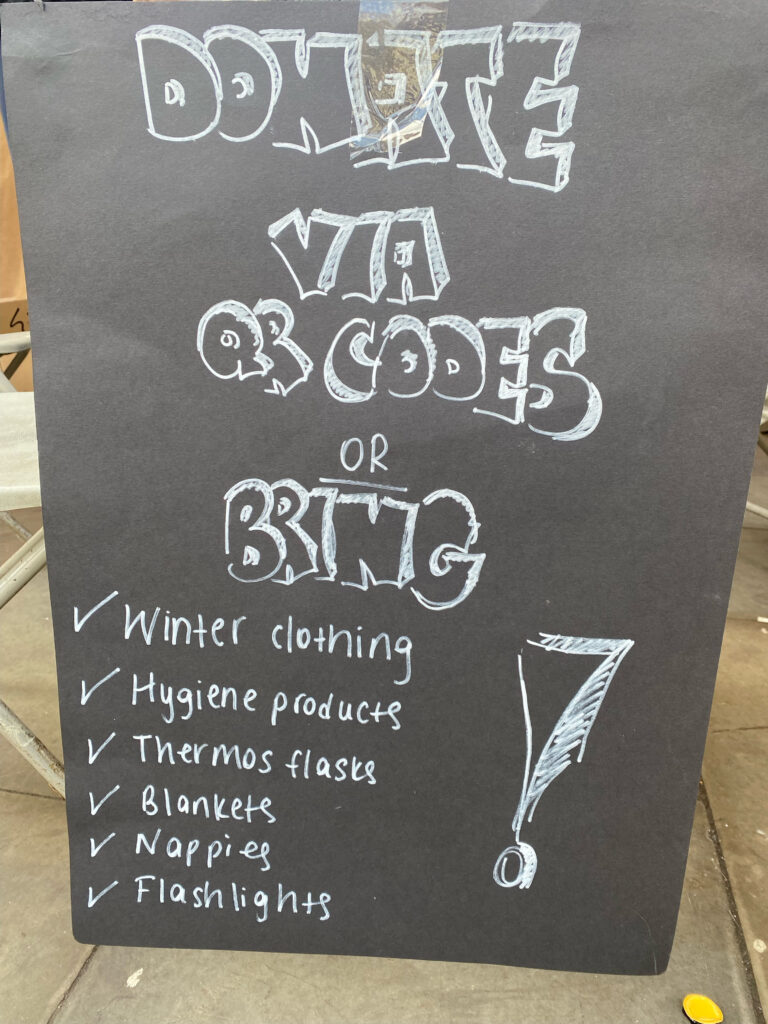 DONATE
VIA
QR CODES
OR
BRING
✓ Winter clothing
✓ Hygiene products
✓ Thermos flasks
✓ Blankets
✓ Nappies
✓ Flashlights
!